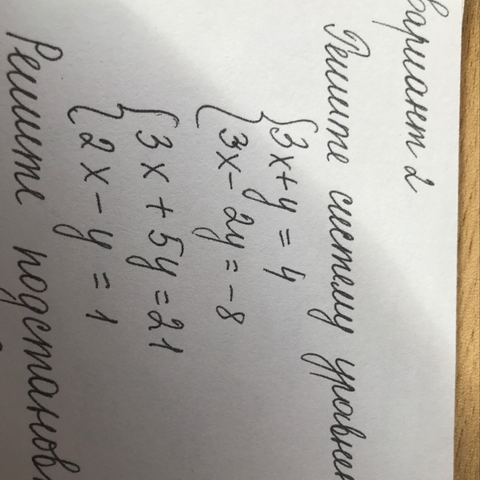 вариант 2
Решите систему уравнен
3x + y = 4
3x - 2y = -8
3x + 5y = 21
2x - y = 1
Решите подстанов